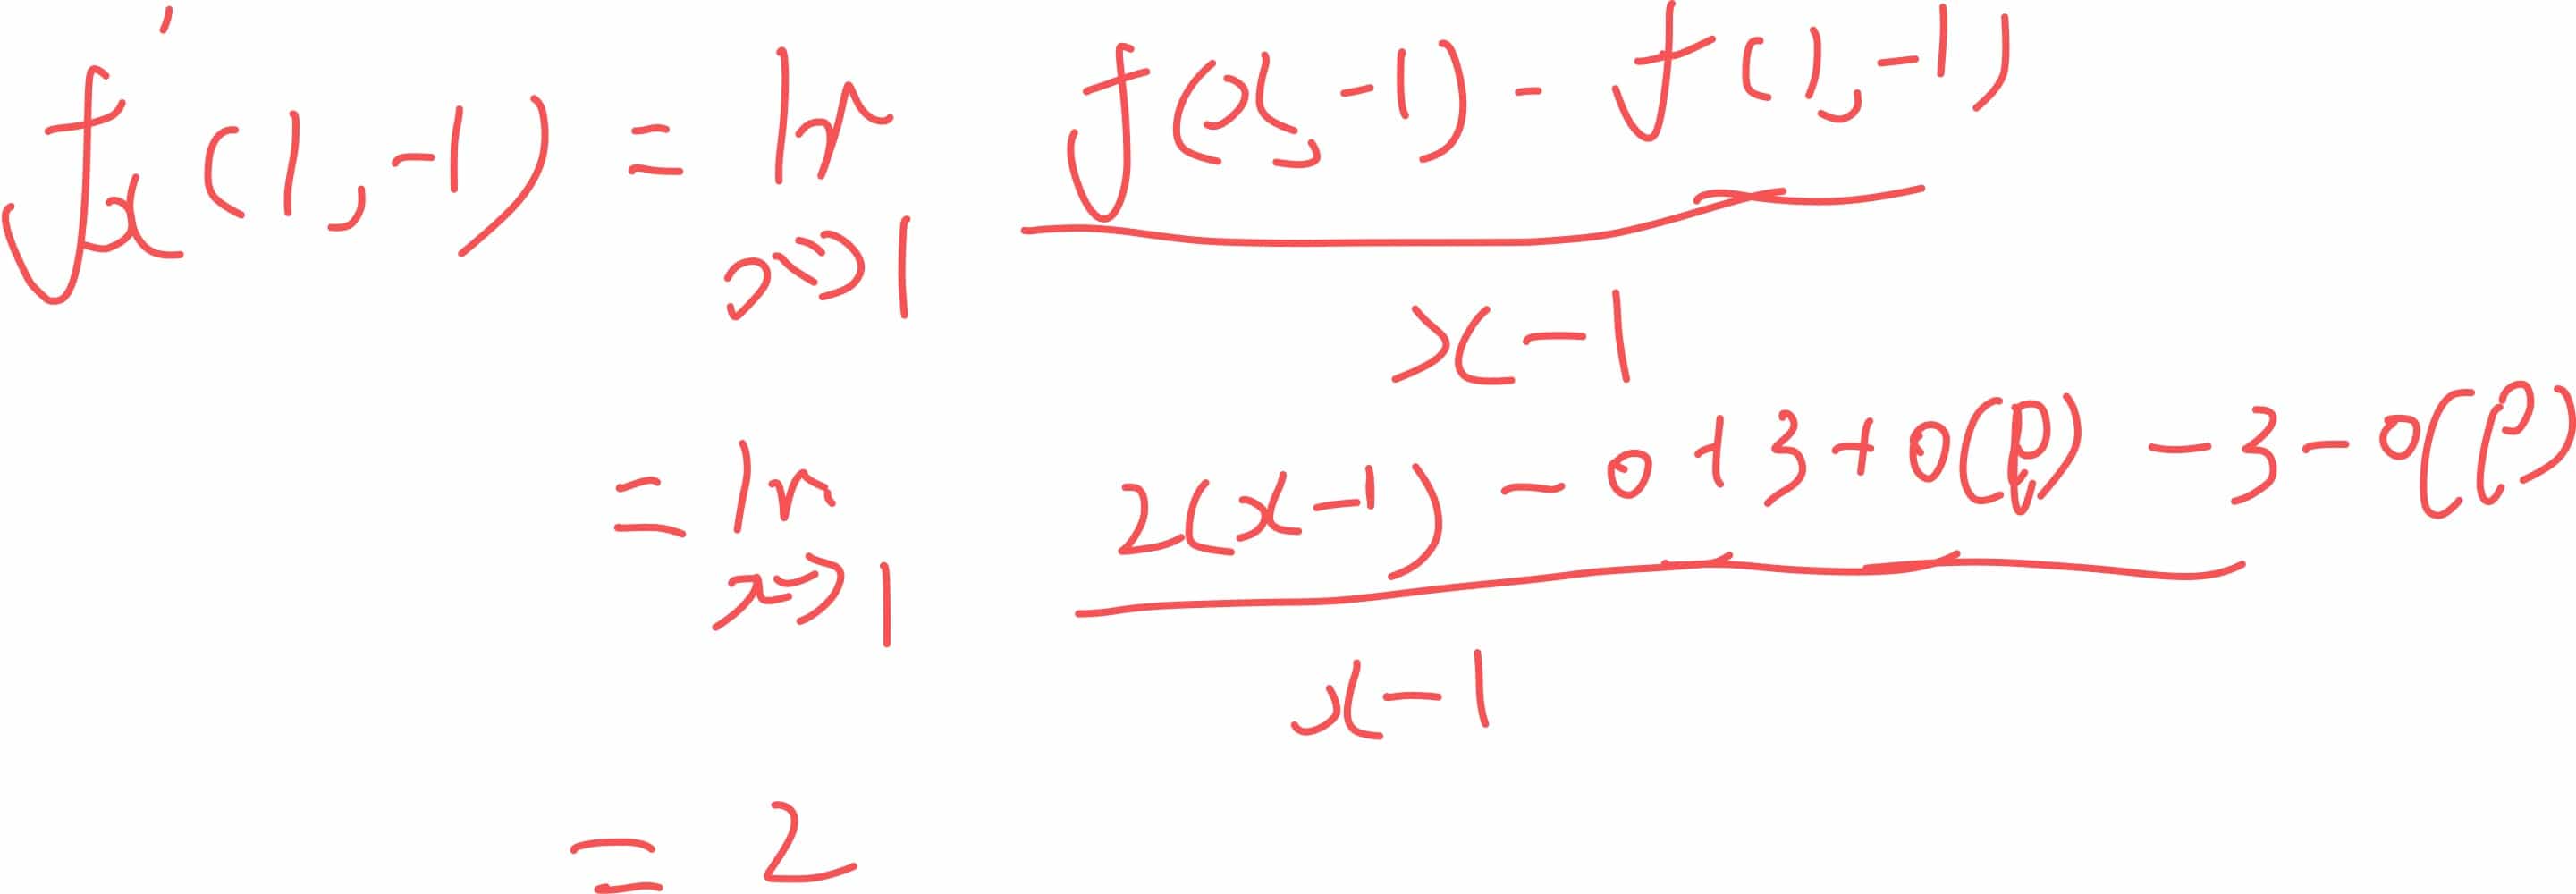 fx'(1,-1) = lim x→1 (f(x,-1) - f(1,-1)) / (x-1)
= lim x→1 (2(x-1) - 0 + 3 + o(ρ) - 3 - o(ρ)) / (x-1)
= 2